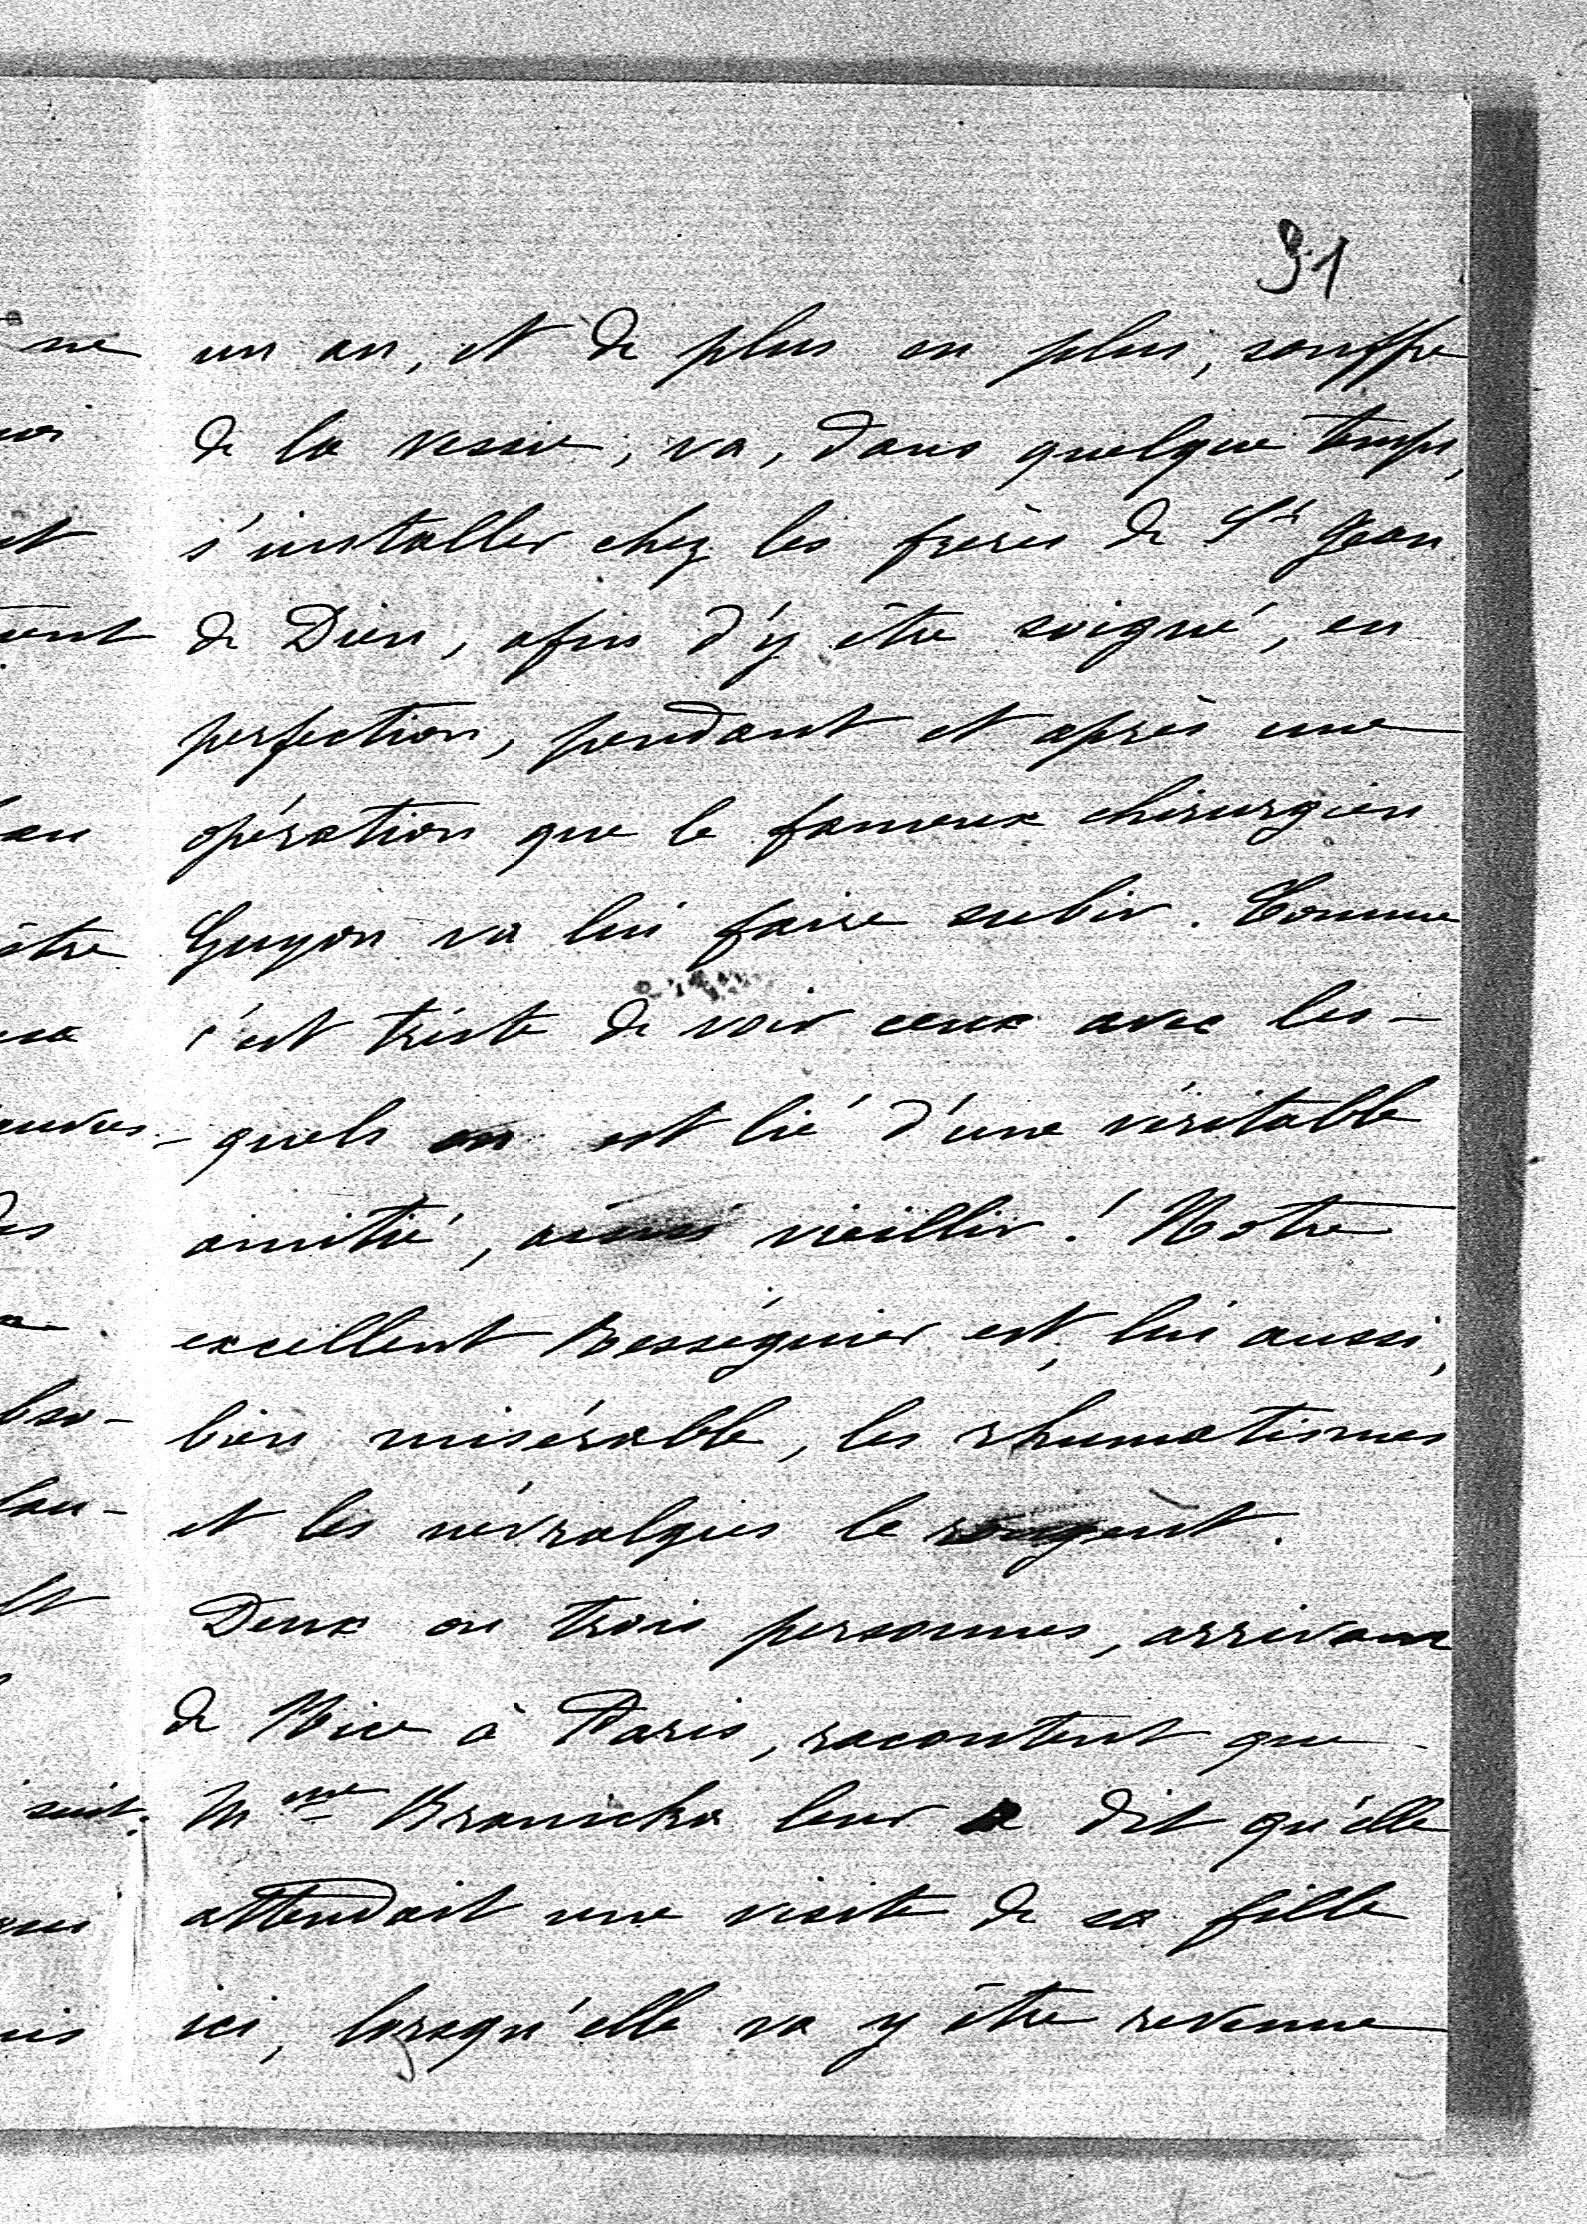 91
un an, et de plus en plus, souffre
de la vessie, va, dans quelque temps,
s'installer chez les frères de St Jean
de Dieu, afin d'y être soigné, en
perfection, pendant et après une
opération que le fameux chirurgien
Guyon va lui faire subir. Comme
c'est triste de voir ceux avec les-
quels on est lié d'une véritable
amitié, ainsi vieillir ! Notre
excellent Rességuier est, lui aussi,
bien misérable, les rhumatismes
et les névralgies le rongent.
Deux ou trois personnes, arrivant
de Nice à Paris, racontent que
Mme Branicka leur a dit qu'elle
attendait une visite de sa fille
ici, lorsqu'elle va y être revenue